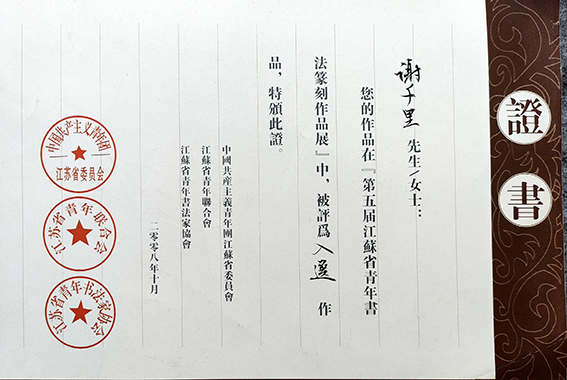 證書
谢千里 先生/女士：
您的作品在『第五届江蘇省青年書
法篆刻作品展』中，被評爲 入選 作
品，特頒此證。
中國共産主義青年團江蘇省委員會
江蘇省青年聯合會
江蘇省青年書法家協會
二零零八年十月
中国共产主义青年团
江苏省委员会
江苏省青年联合会
江苏省青年书法家协会